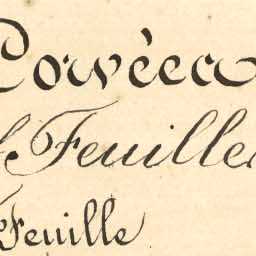 Corvéea
Feuille
Feuille